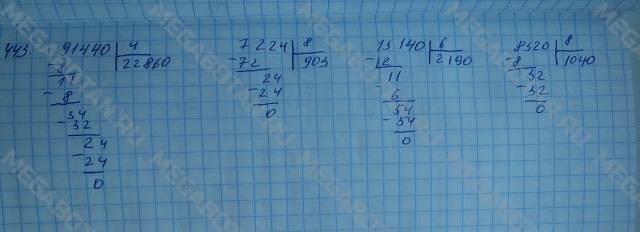 443. 91440 | 4 7224 | 8 13140 | 6 8320 | 8
- 8 | 22860 - 72 | 903 - 12 | 2190 - 8 | 1040
11 24 11 32
- 8 - 24 - 6 - 32
34 0 54 0
- 32 - 54
24 0
- 24
0
MEGABOTAN.RU